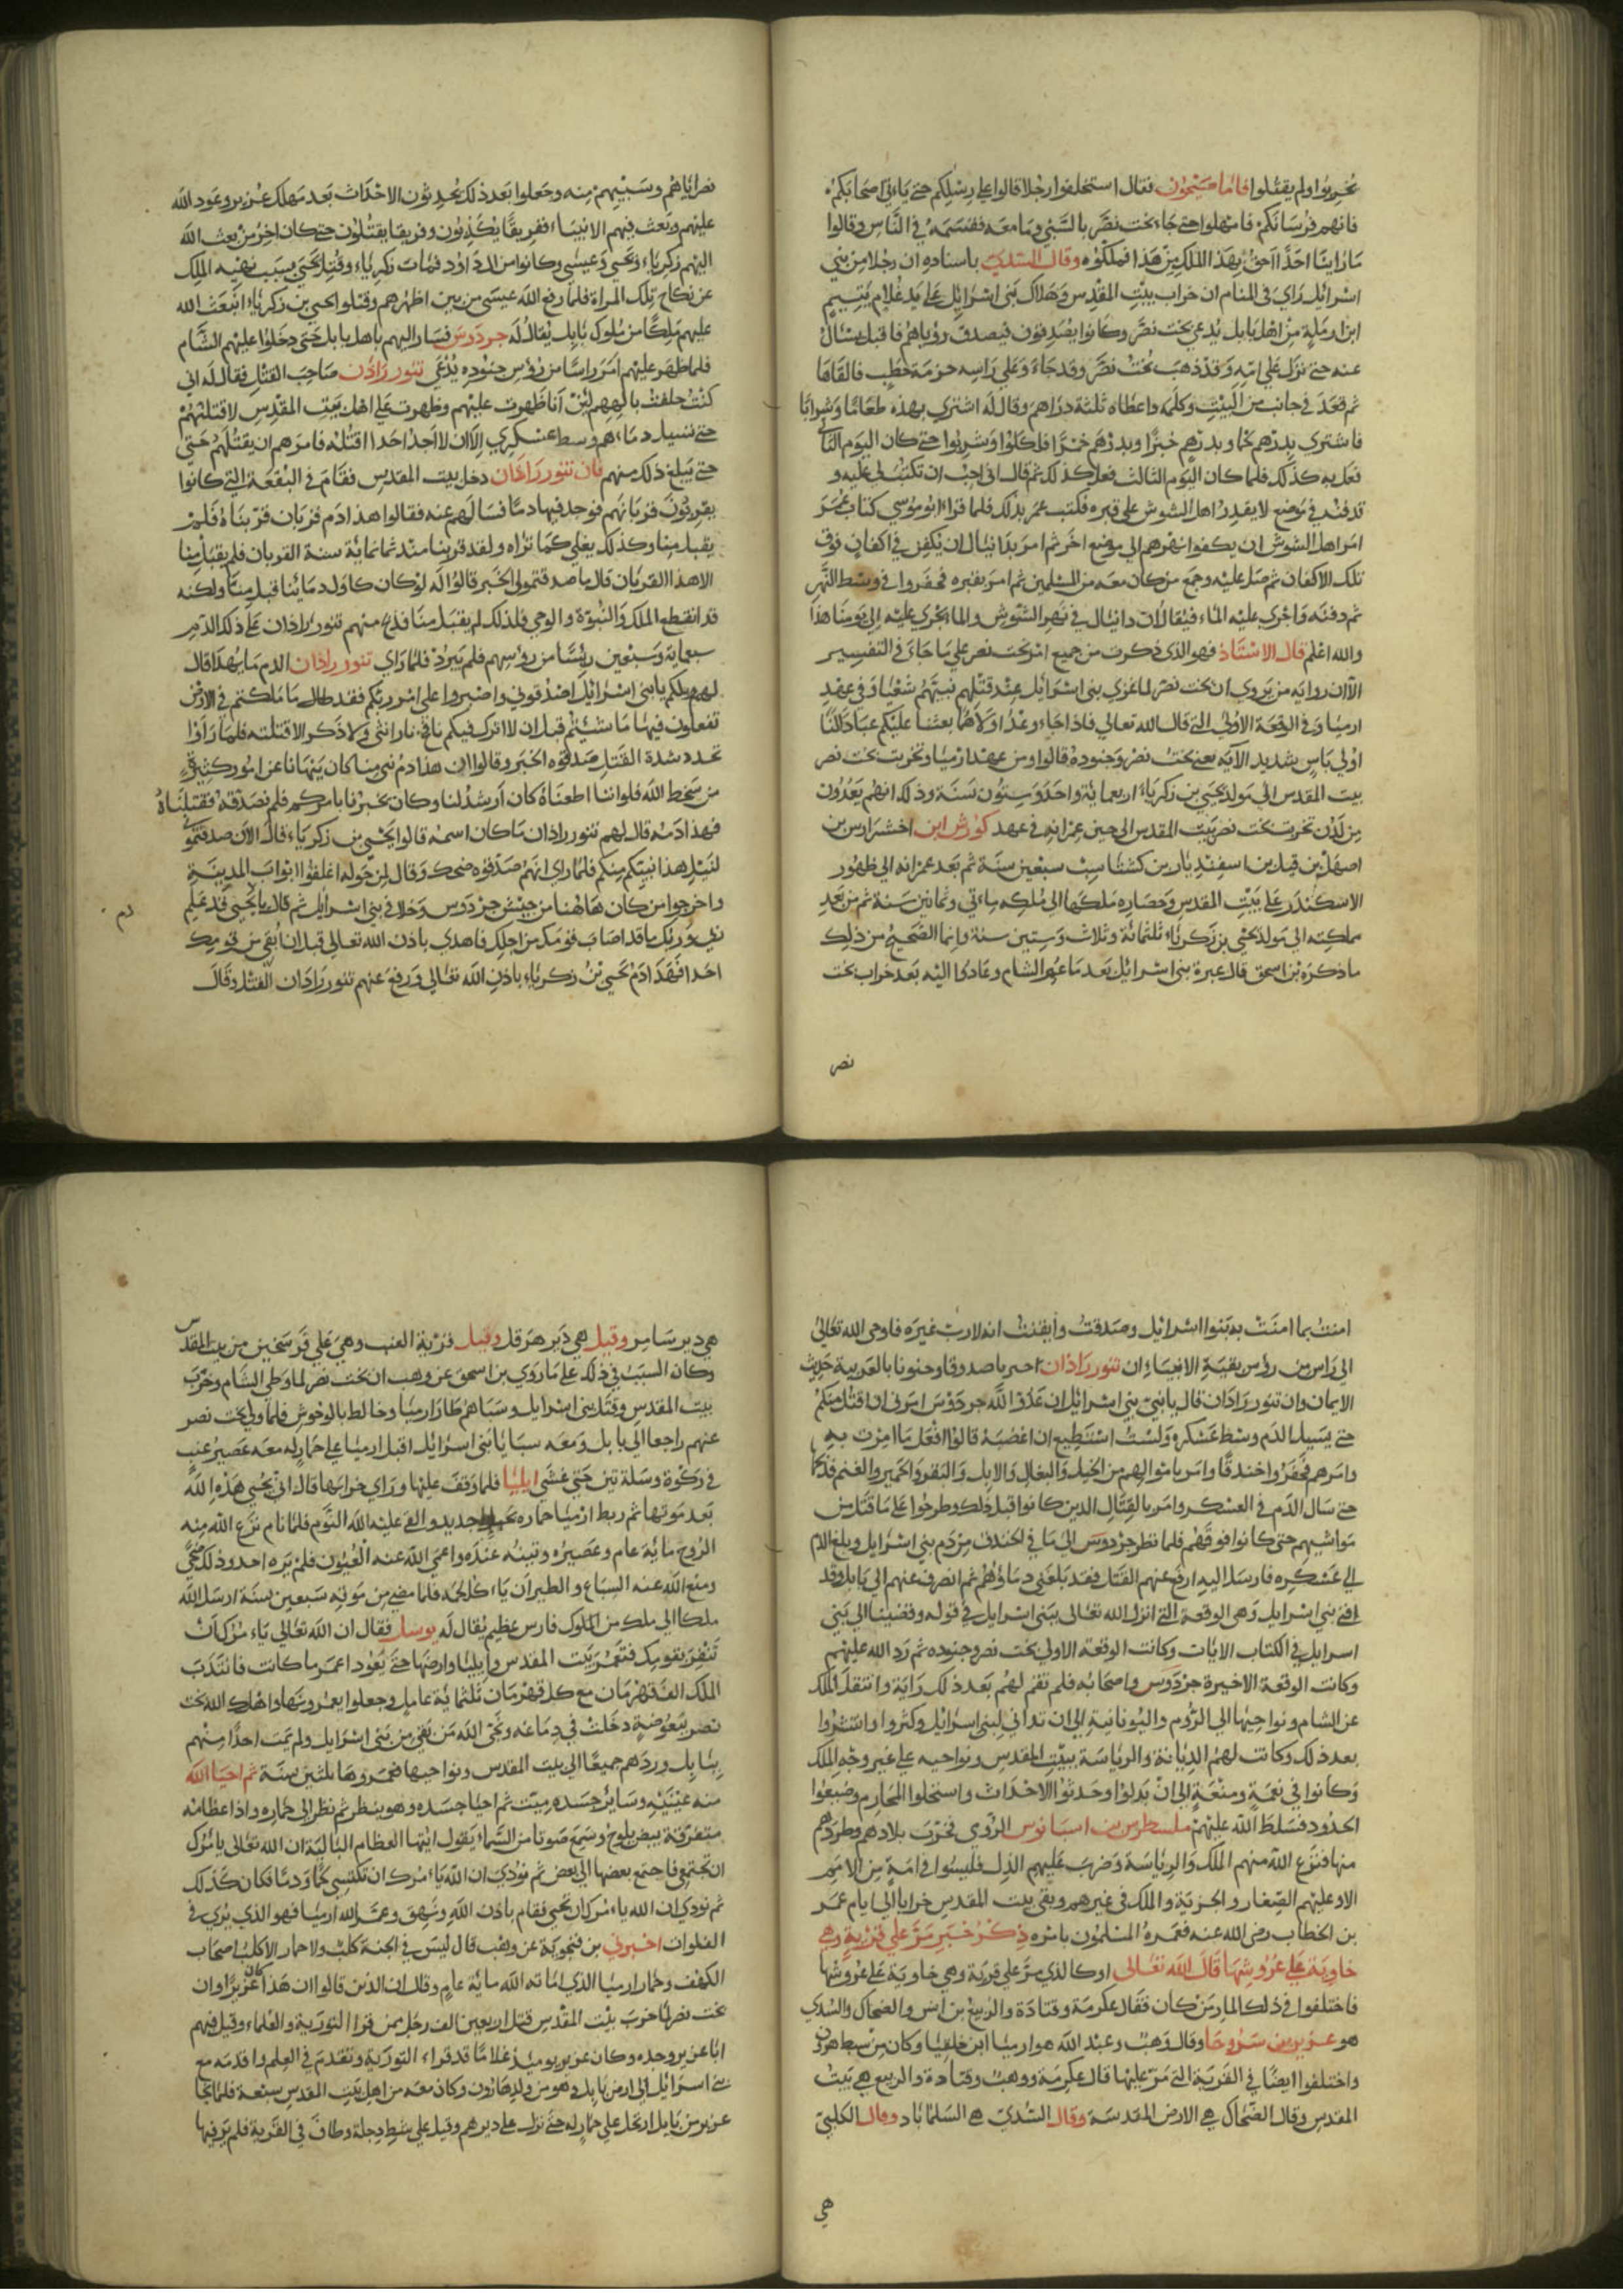 يخربوا ولم يقتلوا فاما صيحون فقال استخلفوا رجلا قالوا على رسلكم حتى ياتي اصحابكم
فانهم فرسانكم فامهلوا حتى جاء بخت نصر بالسبي وما معه فقسمه في الناس وقالوا
ما راينا احدا احق بهذا الملك من هذا فملكوه وقال السدي باسناده ان رجلا من بني
اسرائيل راى في المنام ان خراب بيت المقدس وهلاك بني اسرائيل على يد غلام يتيم
ابن ارملة من اهل بابل يدعى بخت نصر وكانوا يصدقون فيصدق رؤياهم فاقبل يسال
عنه حتى نزل على امه وقد ذهب بخت نصر وقد جاء وعلى راسه حزمة حطب فالقاها
ثم قعد في جانب من البيت وكلمه واعطاه ثلثة دراهم وقال له اشتري بهذه طعاما وشرابا
فاشترى بدرهم لحما وبدرهم خبزا وبدرهم خمرا فاكلوا وشربوا حتى كان اليوم الثاني
فعل به كذلك فلما كان اليوم الثالث فعل كذلك ثم قال اني احب ان تكتب لي عليه و
قد دفن في موضع لا يقدر اهل السوش على قبره فكتب عمر بذلك فلما قرا ابو موسى كتاب عمر
امر اهل السوش ان يكفوا نهرهم الى موضع اخر ثم امر بدانيال ان يكفن في اكفان فوق
تلك الاكفان ثم صلى عليه وجمع من كان معه من المسلمين ثم امر بقبره فحفروا في وسط النهر
ثم دفنه واجرى عليه الماء فيقال ان دانيال في نهر السوش والماء يجري عليه الى يومنا هذا
والله اعلم قال الاستاذ فهو الذي ذكرت من جميع امر بخت نصر على ما جاء في التفسير
الا ان رواية من يروي ان بخت نصر لما غزى بني اسرائيل عند قتلهم نبيهم شعيا وفي عهد
ارميا وفي الوقعة الاولى التي قال الله تعالى فاذا جاء وعد اولاهما بعثنا عليكم عبادا لنا
اولي باس شديد الآية يعني بخت نصر وجنوده قالوا ومن عهد ارميا وتخريب بخت نصر
بيت المقدس الى مولد يحيى بن زكرياء اربعماية واحد وستون سنة وذلك انهم يعدون
من لدن تخريب بخت نصر بيت المقدس الى حين عمرانه في عهد كورش ابن اخشرارس بن
اصهل بن قبل بن اسفنديار بن كشتاسب سبعين سنة ثم بعد عمرانه الى ظهور
الاسكندر على بيت المقدس وحصاره ملكها الى ملكه ماءتي وثمانين سنة ثم من بعد
مملكته الى مولد يحيى بن زكرياء ثلثمائة وثلاث وستين سنة وانما الصحيح من ذلك
ما ذكره بن اسحق قال عبرة بني اسرائيل بعد ما عمر الشام وعادوا اليه بعد خراب بخت
نصر
نصر اياهم وسبيهم منه وجعلوا بعد ذلك يحدثون الاحداث بعد مهلك عزير ويعود الله
عليهم ويبعث فيهم الانبياء ففريقا يكذبون وفريقا يقتلون حتى كان اخر من بعث الله
اليهم زكرياء ويحيى وعيسى وكانوا من ال داود فمات زكرياء وقتل يحيى بسبب نهيه الملك
عن نكاح تلك المراة فلما رفع الله عيسى من بين اظهرهم وقتلوا يحيى بن زكرياء ابتعث الله
عليهم ملكا من ملوك بابل يقال له جردوس فسار اليهم باهل بابل حتى دخلوا عليهم الشام
فلما ظهر عليهم امر راسا من رؤس جنوده يدعى تنورراذان صاحب القتل فقال له اني
كنت حلفت بالههم لئن انا ظهرت عليهم وظهرت على اهل بيت المقدس لاقتلنهم
حتى تسيل دماءهم وسط عسكري الا ان لا اجد احدا اقتله فامرهم ان يقتلهم حتى
حتى يبلغ ذلك منهم فان تنورراذان دخل بيت المقدس فقام في البقعة التي كانوا
يقربون قربانهم فوجد فيها دما فسالهم عنه فقالوا هذا دم قربان قربناه فلم
يقبل منا وكذلك يغلي كما تراه ولقد قربنا منذ ثمانماية سنة القربان فلم يقبل منا
الا هذا القربان قال ما صدقتموني الخبر قالوا له لو كان كاول دمائنا قبل منا ولكنه
قد انقطع الملك والنبوة والوحي فلذلك لم يقبل منا فذبح منهم تنورراذان على ذلك الدم
سبعماية وسبعين رئيسا من رؤسهم فلم يبرد فلما راى تنورراذان الدم ما يهدا قال
لهم ويلكم يا بني اسرائيل اصدقوني واصبروا على امر ربكم فقد طال ما ملكتم في الارض
تفعلون فيها ما شئتم قبل ان لا اترك فيكم نافخ نار انثى ولا ذكر الا قتلته فلما راوا
تجدد شدة القتل صدقوه الخبر وقالوا ان هذا دم نبي منا كان ينهانا عن امور كثيرة
من سخط الله فلو اننا اطعناه كان ارشد لنا وكان يخبرنا بامركم فلم نصدقه فقتلناه
فهذا دمه قال لهم تنورراذان ما كان اسمه قالوا يحيى بن زكرياء قال الآن صدقتموني
لمثل هذا نبيكم منكم فلما راى انهم صدقوه ضحك وقال لمن حوله اغلقوا ابواب المدينة
واخرجوا من كان هاهنا من جيش جردوس وخلا في بني اسرائيل ثم قال يا يحيى قد علم
ربي وربك ما قد اصاب قومك من اجلك فاهدى باذن الله تعالى قبل ان ابقي من قومك
احدا فهدا دم يحيى بن زكرياء باذن الله تعالى ورفع عنهم تنورراذان القتل وقال
دم
امنت بما امنت به بنوا اسرائيل وصدقت وايقنت انه لا رب غيره فاوحى الله تعالى
الى راس من رؤس بقية الانبياء ان تنورراذان صدوقا وحنونا بالعربية حديث
الايمان وان تنورراذان قال يا نبي بني اسرائيل ان عدو الله جردوس امرني ان اقتل منكم
حتى يسيل الدم وسط عسكره ولست استطيع ان اعصيه قالوا افعل ما امرت به
وامرهم فحفروا خندقا وامر باموالهم من الخيل والبغال والابل والبقر والحمير والغنم فذبحها
حتى سال الدم في العسكر وامر بالقتال الذين كانوا قبل ذلك وطرحوا على ما قتل من
مواشيهم حتى كانوا فوقهم فلما نظر جردوس الى ما في الخندق من دم بني اسرائيل وبلغ الدم
الى عسكره فارسل اليه ارفع عنهم القتل فقد بلغني دماؤهم ثم انصرف عنهم الى بابل وقد
افنى بني اسرايل وهى الوقعة التي انزل الله تعالى ببني اسرايل في قوله وقضينا الى بني
اسرايل في الكتاب الايات وكانت الوقعة الاولى بخت نصر وجنوده ثم رد الله عليهم
وكانت الوقعة الاخيرة جردوس واصحابه فلم تقم لهم بعد ذلك راية وانتقل الملك
عن الشام ونواحيها الى الروم واليونانية الى ان تداني لبني اسرائيل وكثروا وانتشروا
بعد ذلك وكانت لهم الديانة والرياسة ببيت المقدس ونواحيه على غير وجه الملك
وكانوا في نعمة ومنعة الى ان بدلوا وحدثوا الاحداث واستحلوا المحارم وضيعوا
الحدود فسلط الله عليهم ملسطرس بن اسيانوس الرومي فخرب بلادهم وطردهم
منها فنزع الله منهم الملك والرياسة وضرب عليهم الذل فليسوا في امة من الامم
الا وعليهم الصغار والجزية والملك في غيرهم وبقي بيت المقدس خرابا الى ايام عمر
بن الخطاب رضى الله عنه فعمره المسلمون بامره ذكر خبر مر على قرية وهي
خاوية على عروشها قال الله تعالى او كالذي مر على قرية وهي خاوية على عروشها
فاختلفوا في ذلك المار من كان فقال عكرمة وقتادة والربيع بن انس والضحاك والسدي
هو عزير بن سروحا وقال وهب وعبد الله هو ارميا ابن خلفيا وكان من سبط هرون
واختلفوا ايضا في القرية التي مر عليها قال عكرمة ووهب وقتادة والربيع هي بيت
المقدس وقال الضحاك هي الارض المقدسة وقال السدي هي السلماباد وقال الكلبي
هي
هي دير سامر وقيل هي دير هرقل وقيل قرية العنب وهى على فرسخين من بيت المقدس
وكان السبب في ذلك على ما روى بن اسحق عن وهب ان بخت نصر لما وطي الشام وخرب
بيت المقدس وقتل بني اسرايل وسباهم طار ارميا وخالط بالوحوش فلما ولى بخت نصر
عنهم راجعا الى بابل ومعه سبايا بني اسرايل اقبل ارميا على حمار له معه عصير عنب
في ركوة وسلة تين حتى غشي ايليا فلما وقف عليها وراى خرابها قال انى يحيي هذه الله
بعد موتها ثم ربط ارميا حماره بحبل جديد والقى عليه الله النوم فلما نام نزع الله منه
الروح ماية عام وعصيره وتينه عنده واعمى الله عنه العيون فلم يره احد وذلك ضحى
ومنع الله عنه السباع والطير ان ياءكل لحمه فلما مضى من موته سبعين سنة ارسل الله
ملكا الى ملك من الملوك فارس عظيم يقال له بوسك فقال ان الله تعالى ياءمرك ان
تنفر بقومك فتعمر بيت المقدس وايليا وارضها حتى يعودا عمر ما كانت فانتدب
الملك الف قهرمان مع كل قهرمان ثلثماية عامل وجعلوا يعمرونها واهلك الله بخت
نصر ببعوضة دخلت في دماغه ونجى الله من بقي من بني اسرايل ولم يمت احدا منهم
ببابل وردهم جميعا الى بيت المقدس ونواحيها فعمروها ثلثين سنة ثم احيا الله
منه عينيه وساير جسده ميت ثم احيا جسده وهو ينظر ثم نظر الى حماره واذا عظامه
متفرقة بيض يلوح وسمع صوتا من السماء يقول ايتها العظام البالية ان الله تعالى يامرك
ان تجتمعي فاجتمع بعضها الى بعض ثم نودي ان الله ياءمرك ان تكتسي لحما ودما فكان كذلك
ثم نودي ان الله ياءمرك ان تحيى فقام باذن الله وشهق وعمر الله ارميا فهو الذي يرى في
الفلوات اخبرني بن فنجوية عن وهب قال ليس في الجنة كلب ولا حمار الا كلب اصحاب
الكهف وحمار ارميا الذي اماته الله ماية عام وقال ان الذين قالوا ان هذا كان عزيرا وان
بخت نصر لما خرب بيت المقدس قتل اربعين الف رجل ممن قرا التورية والعلماء وقيل فيهم
ابا عزير وجده وكان عزير يوميذ غلاما قد قراء التورية وتقدم في العلم واقدمه مع
بني اسرائيل الى ارض بابل وهو من ولد هارون وكان معه من اهل بيت المقدس سبعة فلما نجا
عزير من بابل ارتحل على حمار له حتى نزل على دير هرقل على شط دجلة وطاف في القرية فلم ير فيها